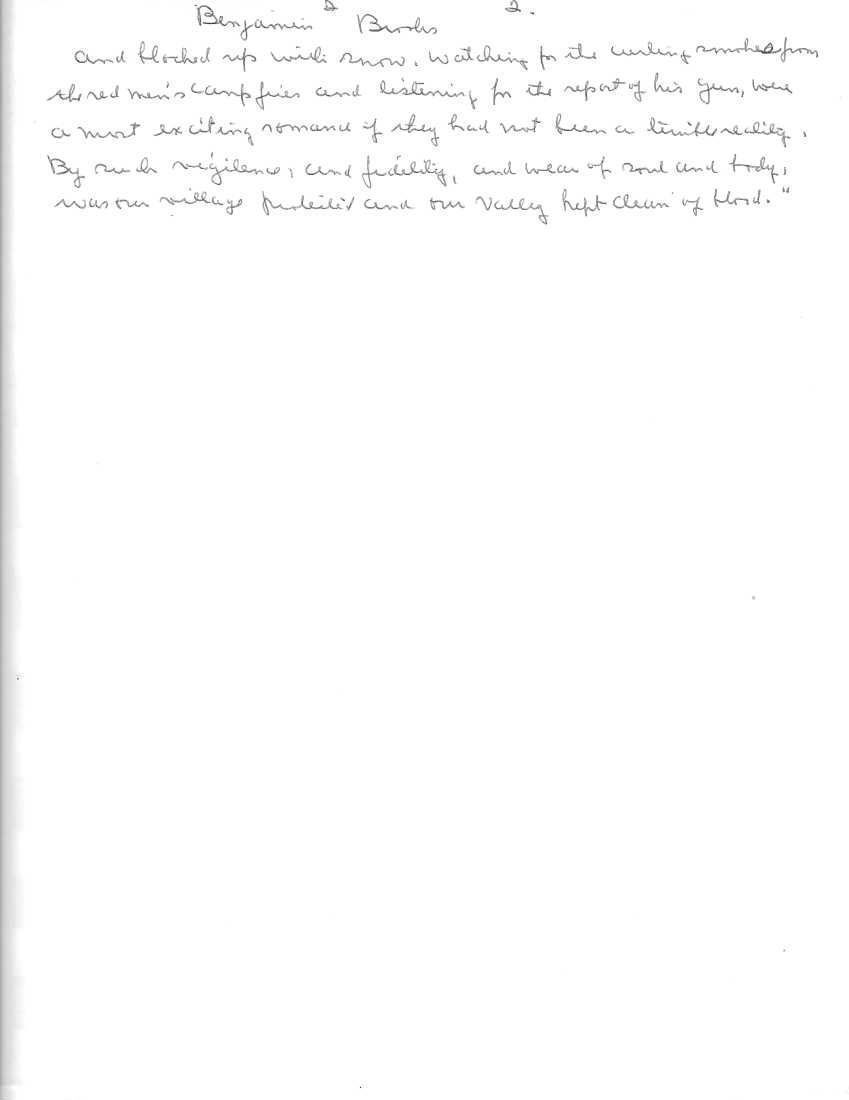 Benjamin 2 Brooks 2.
and blocked up with snow. Watching for the curling smoke from
the red men's camp fires and listening for the report of his gun, were
a most exciting romance if they had not been a terrible reality.
By such vigilence, and fidelity, and wear of soul and body,
was our village protected and our valley kept clean of blood."